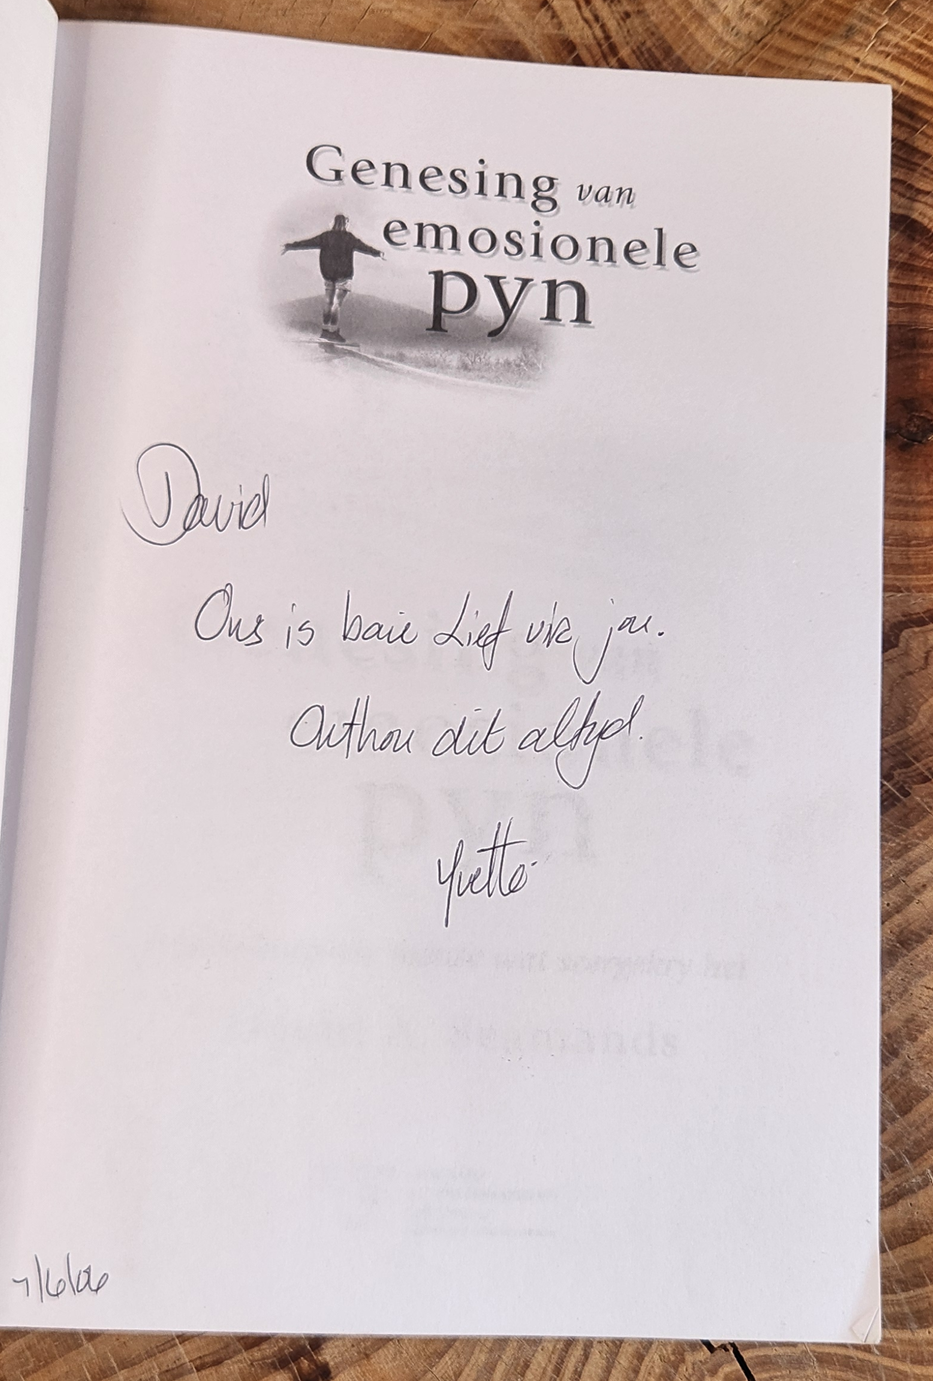 Genesing van
emosionele
pyn
David
Ons is baie Lief vir jou.
Onthou dit altyd.
Yvette
7/6/06